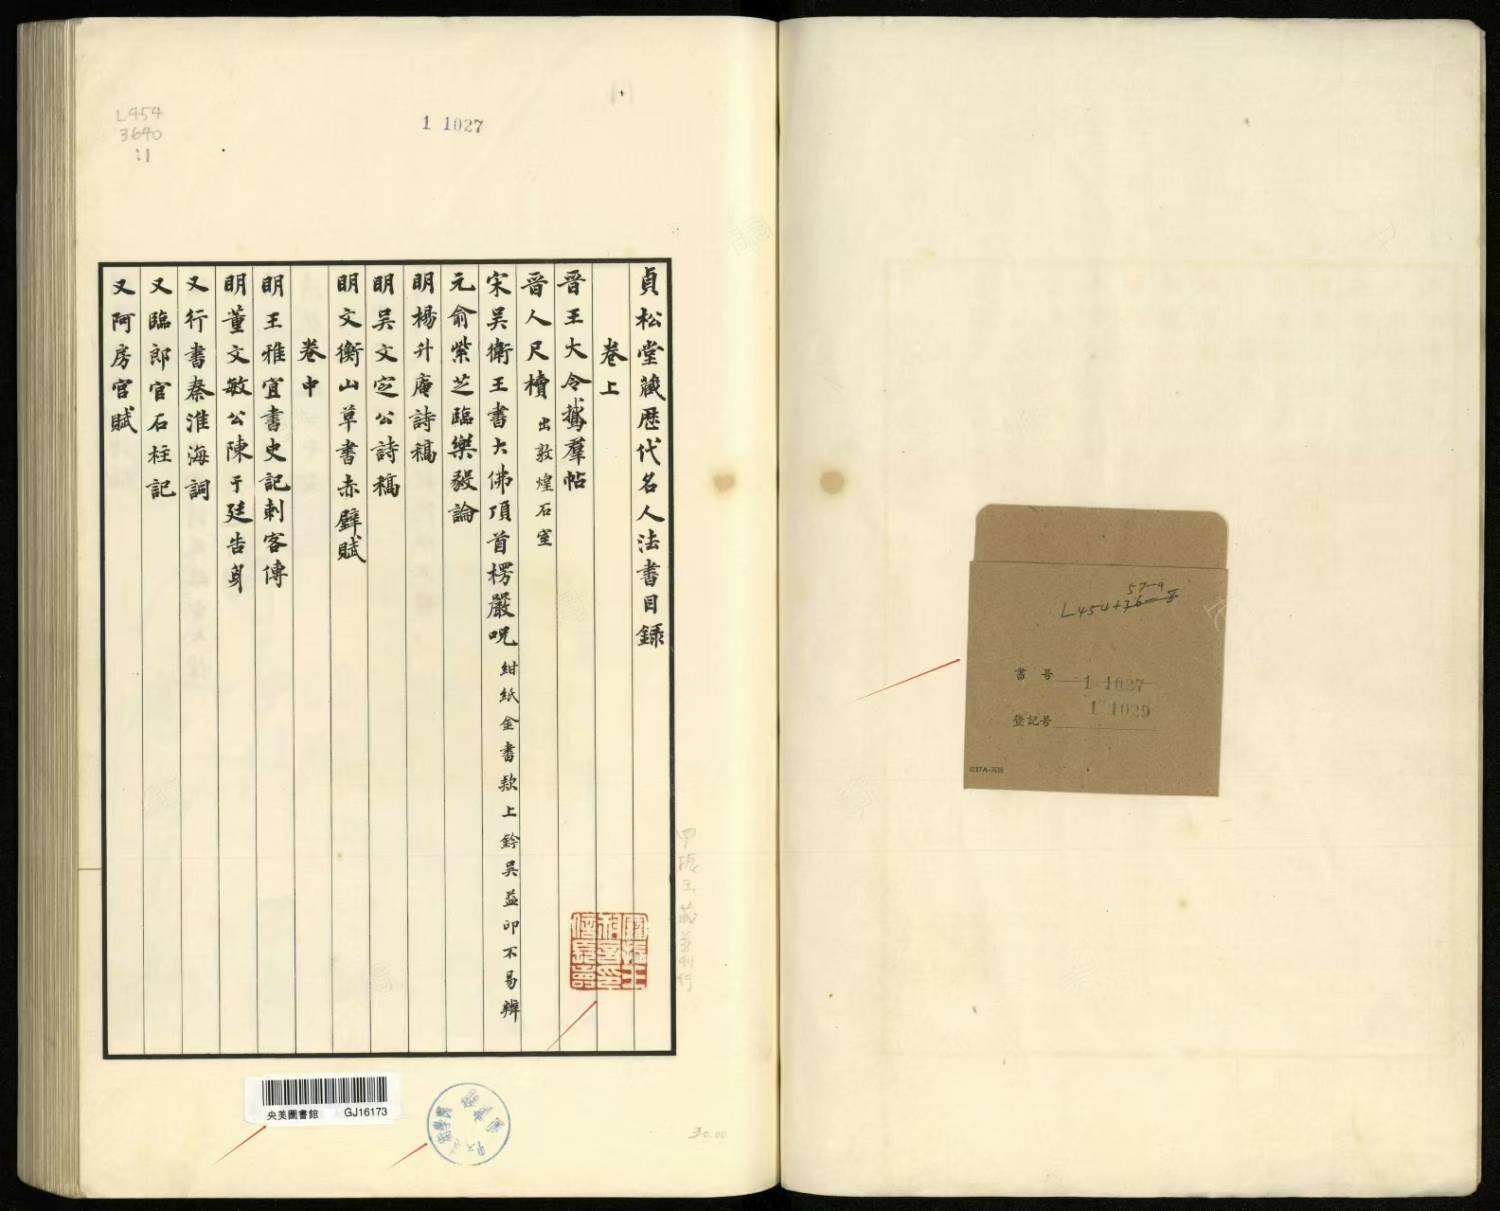 L454
3640
:1
1 1027
貞松堂藏歷代名人法書目錄
卷上
晉王大令鵝羣帖
晉人尺牘 出敦煌石室
宋吳衛王書大佛頂首楞嚴呪 紺紙金書款上鈐吳益印不易辨
元俞紫芝臨樂毅論
明楊升庵詩稿
明吳文定公詩稿
明文衡山草書赤壁賦
卷中
明王雅宜書史記刺客傳
明董文敏公陳于廷告身
又行書秦淮海詞
又臨郎官石柱記
又阿房宮賦
央美圖書館 GJ16173
30.00
57-9
書号 1 1027
1 1029
登記号